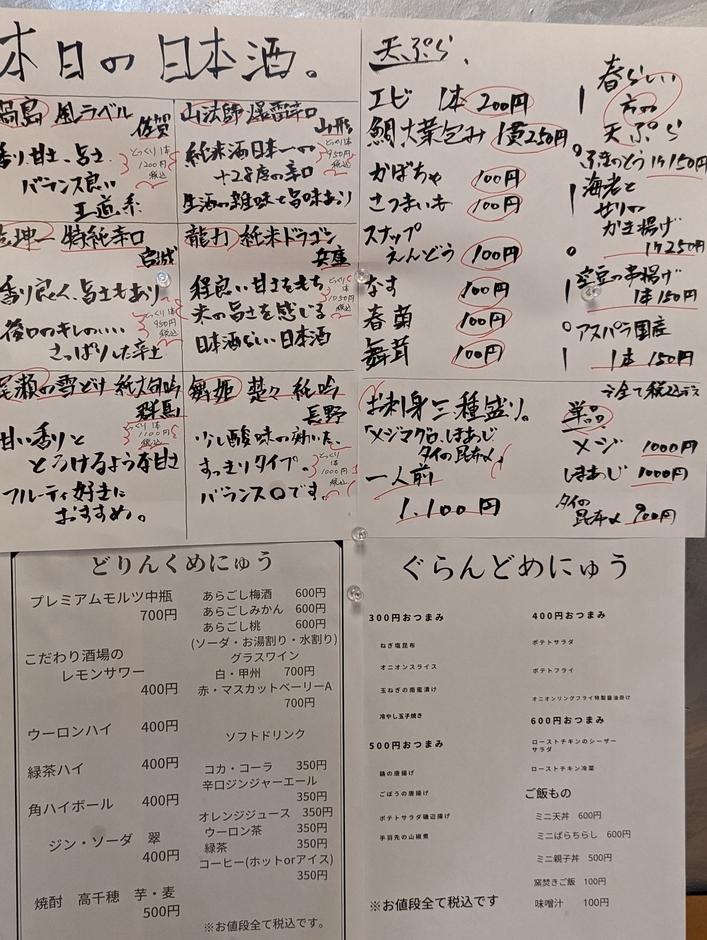 本日の日本酒。
鍋島 風ラベル
佐賀
香り甘土、旨土
バランス良い
王道系
とっくり1本
1200円
税込
山法師 爆雷辛口
山形
純米酒日本一の
+28度の辛口
生酒の雑味と旨味あり
とっくり1本
950円
税込
乾坤一 特純辛口
宮城
香り良く、旨土もあり、
後口のキレのいい
さっぱりした辛土
とっくり1本
950円
税込
龍力 純米ドラゴン
兵庫
程良い甘さをもち
米の旨さを感じる
日本酒らしい日本酒
とっくり1本
1050円
税込
尾瀬の雪どけ 純大吟
群馬
甘い香りと
とろけるような甘さ
フルーティ好きに
おすすめ。
とっくり1本
1100円
税込
舞姫 楚々 純吟
長野
少し酸味の効いた、
すっきりタイプ。
バランス◎です。
とっくり1本
1000円
税込
天ぷら、
エビ 1本 200円
鯛大葉包み 1貫250円
かぼちゃ 100円
さつまいも 100円
スナップ
えんどう 100円
なす 100円
春菊 100円
舞茸 100円
春らしい
天ぷら
ふきのとう 1ケ150円
海老と
せりの
かき揚げ
1ケ250円
空豆の串揚げ
1本150円
アスパラ国産
1本150円
※全て税込です
お刺身三種盛り。
「メジマグロ、しまあじ
タイの昆布〆」
一人前
1.100円
単品
メジ 1000円
しまあじ 1000円
タイの
昆布〆 900円
どりんくめにゅう
プレミアムモルツ中瓶
700円
こだわり酒場の
レモンサワー
400円
ウーロンハイ 400円
緑茶ハイ 400円
角ハイボール 400円
ジン・ソーダ 翠
400円
焼酎 高千穂 芋・麦
500円
あらごし梅酒 600円
あらごしみかん 600円
あらごし桃 600円
(ソーダ・お湯割り・水割り)
グラスワイン
白・甲州 700円
赤・マスカットベーリーA
700円
ソフトドリンク
コカ・コーラ 350円
辛口ジンジャーエール
350円
オレンジジュース 350円
ウーロン茶 350円
緑茶 350円
コーヒー(ホットorアイス)
350円
※お値段全て税込です。
ぐらんどめにゅう
300円おつまみ
ねぎ塩昆布
オニオンスライス
玉ねぎの南蛮漬け
冷やし玉子焼き
500円おつまみ
鶏の唐揚げ
ごぼうの唐揚げ
ポテトサラダ磯辺揚げ
手羽先の山椒煮
※お値段全て税込です
400円おつまみ
ポテトサラダ
ポテトフライ
オニオンリングフライ特製醤油掛け
600円おつまみ
ローストチキンのシーザー
サラダ
ローストチキン冷菜
ご飯もの
ミニ天丼 600円
ミニばらちらし 600円
ミニ親子丼 500円
窯焚きご飯 100円
味噌汁 100円